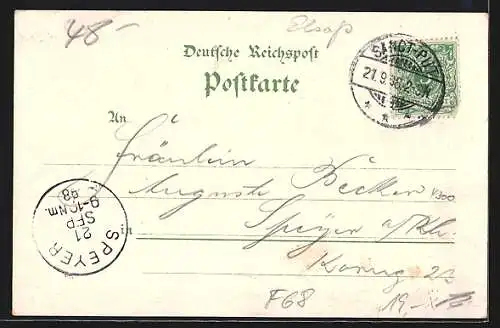 48-
Elsaß
Deutsche Reichspost
Postkarte
SANCT-PILT
21.9.98.2-3N
An
Fräulein
Auguste Becker
V300
in Speyer a/Rh.
SPEYER
21
SEP
9-10Nm.
98
F68
19.-